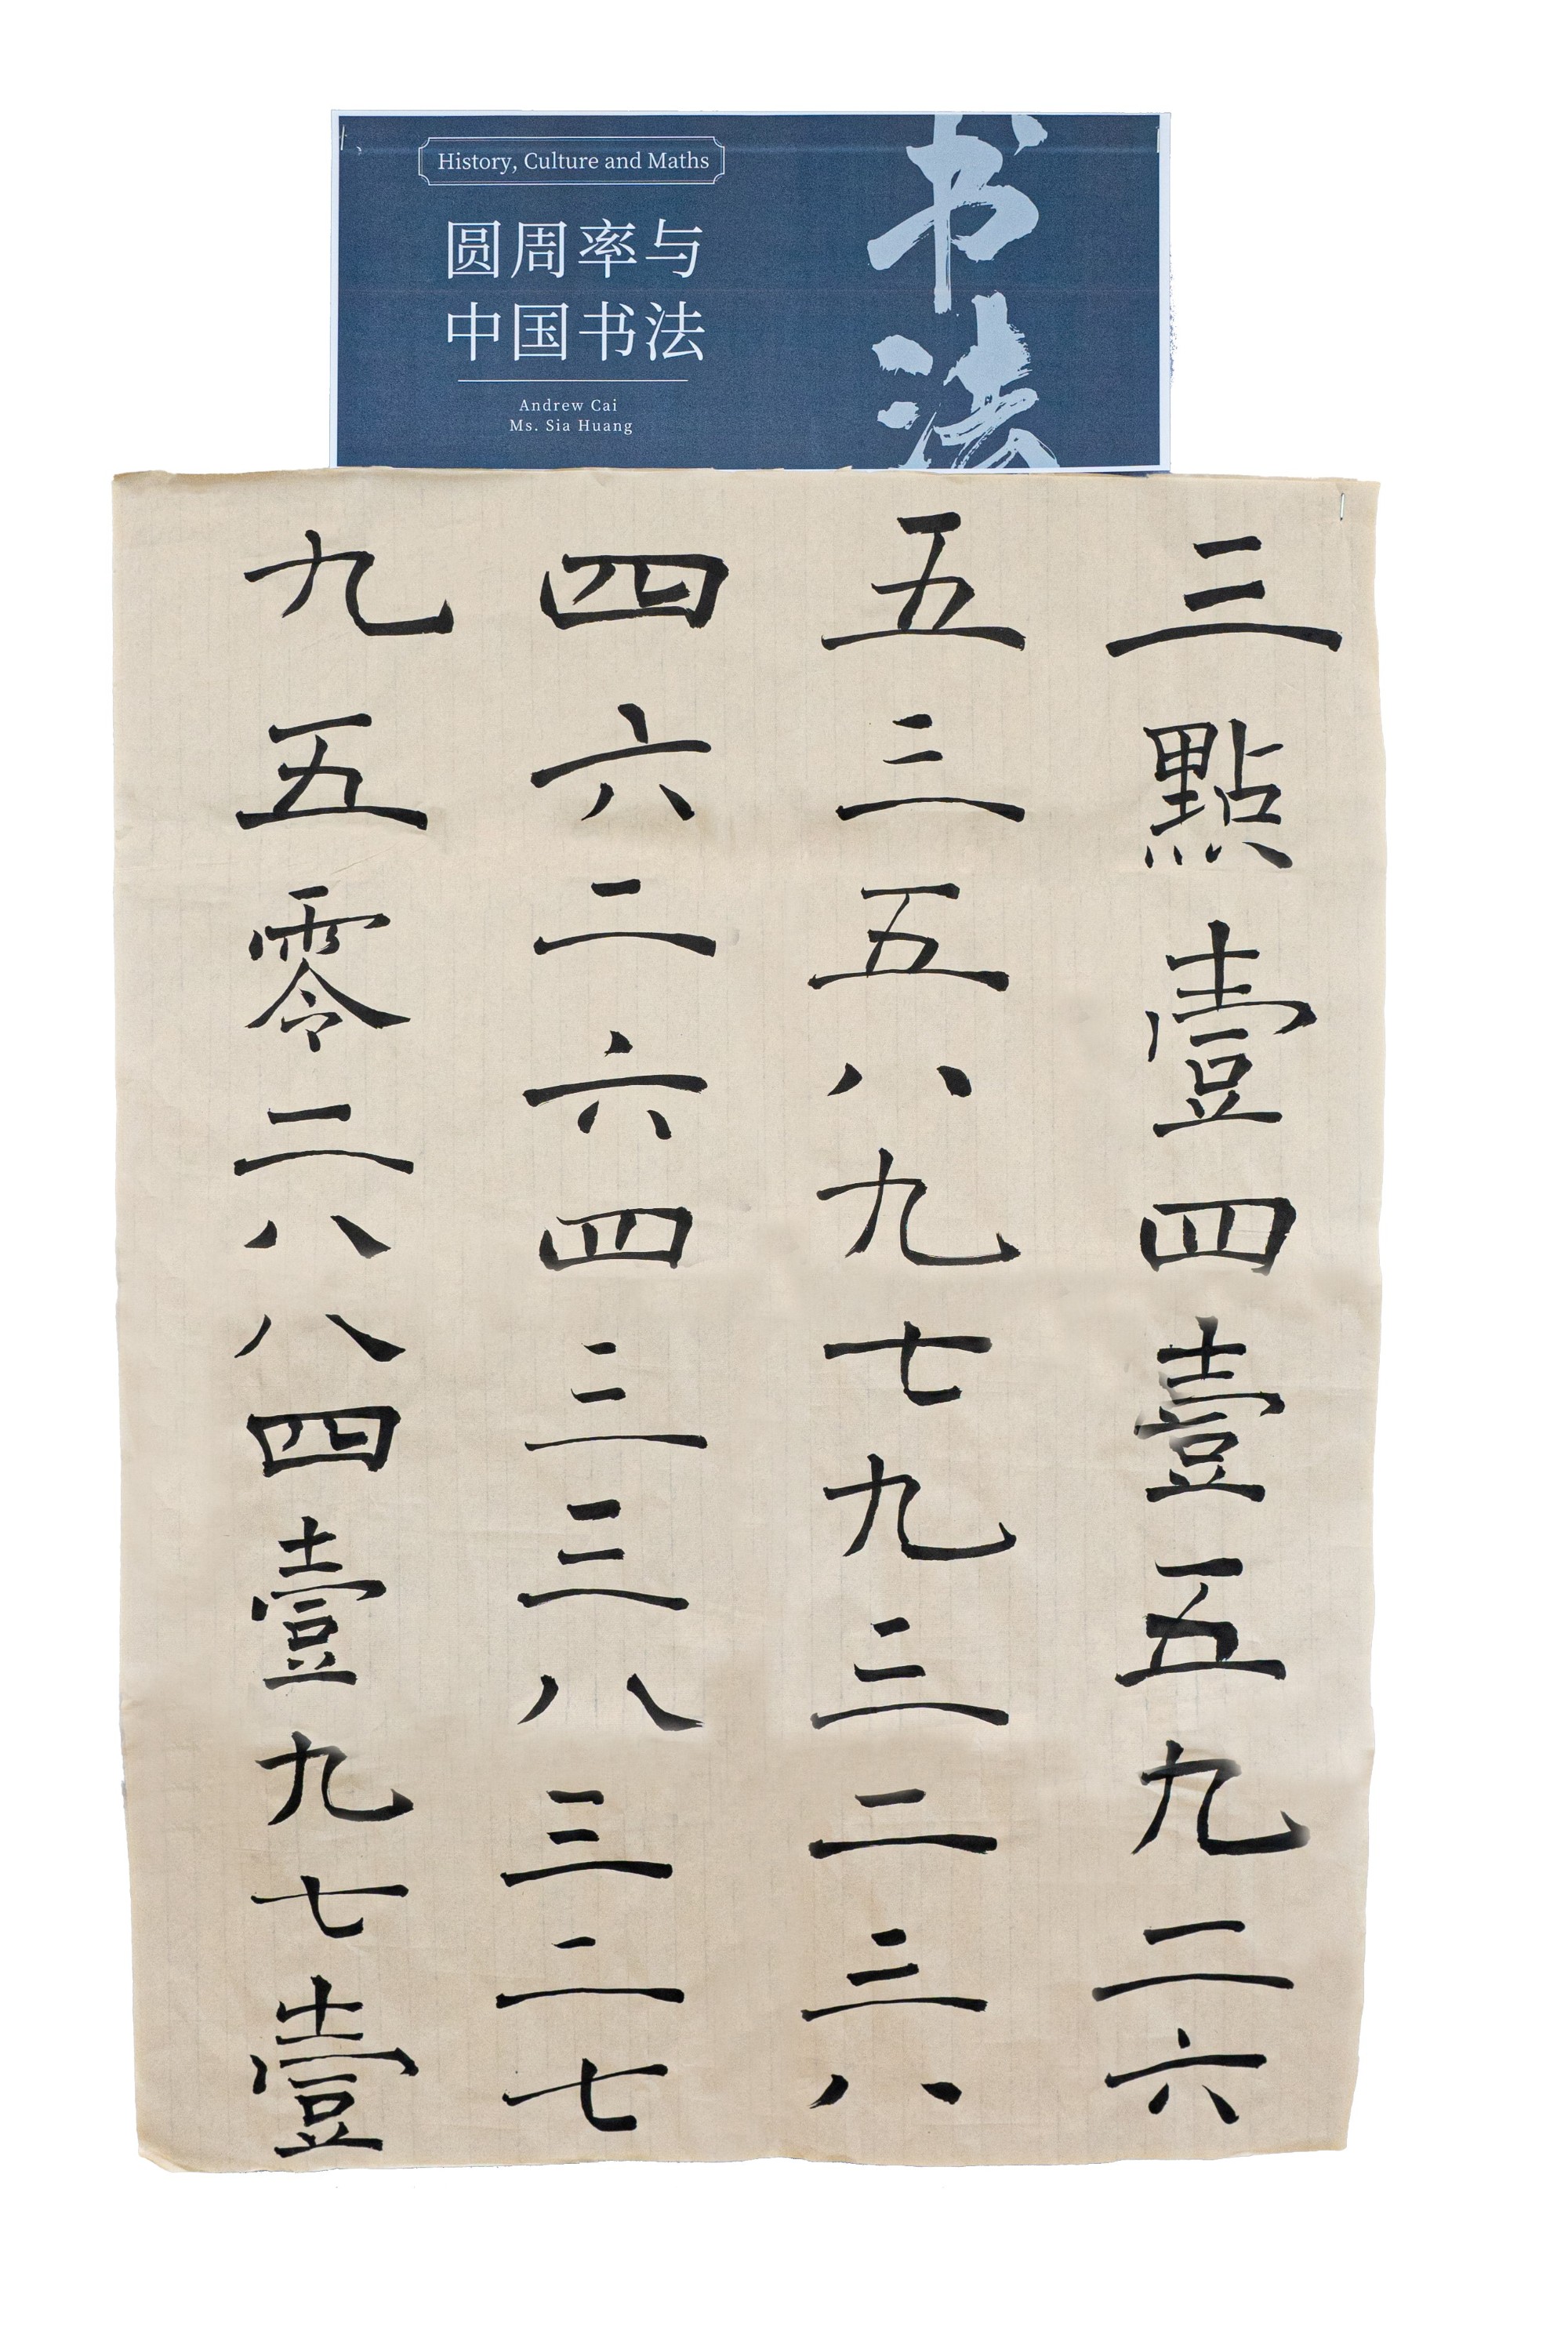 History, Culture and Maths
圆周率与
中国书法
Andrew Cai
Ms. Sia Huang
书法
三點壹四壹五九二六
五三五八九七九三二三八
四六二六四三三八三二七
九五零二八八四壹九七壹